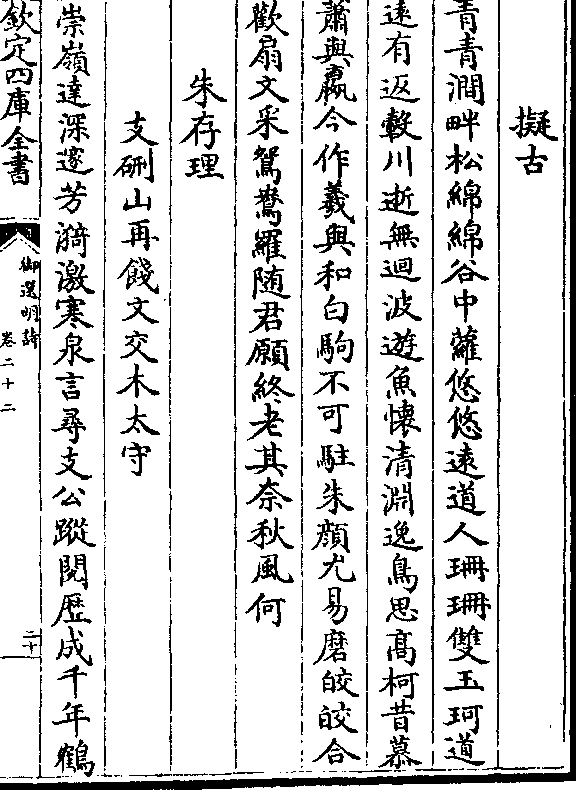 擬古
青青澗畔松綿綿谷中蘿悠悠遠道人珊珊雙玉珂道
遠有返轂川逝無迴波遊魚懷清淵逸鳥思高柯昔慕
蕭與嬴今作羲與和白駒不可駐朱顏尤易磨皎皎合
歡扇文采鴛鴦羅随君願終老其奈秋風何
朱存理
支硎山再餞文交木太守
崇嶺達深邃芳漪激寒泉言尋支公蹤閱歴成千年鶴
欽定四庫全書
御選明詩
卷二十二
二十